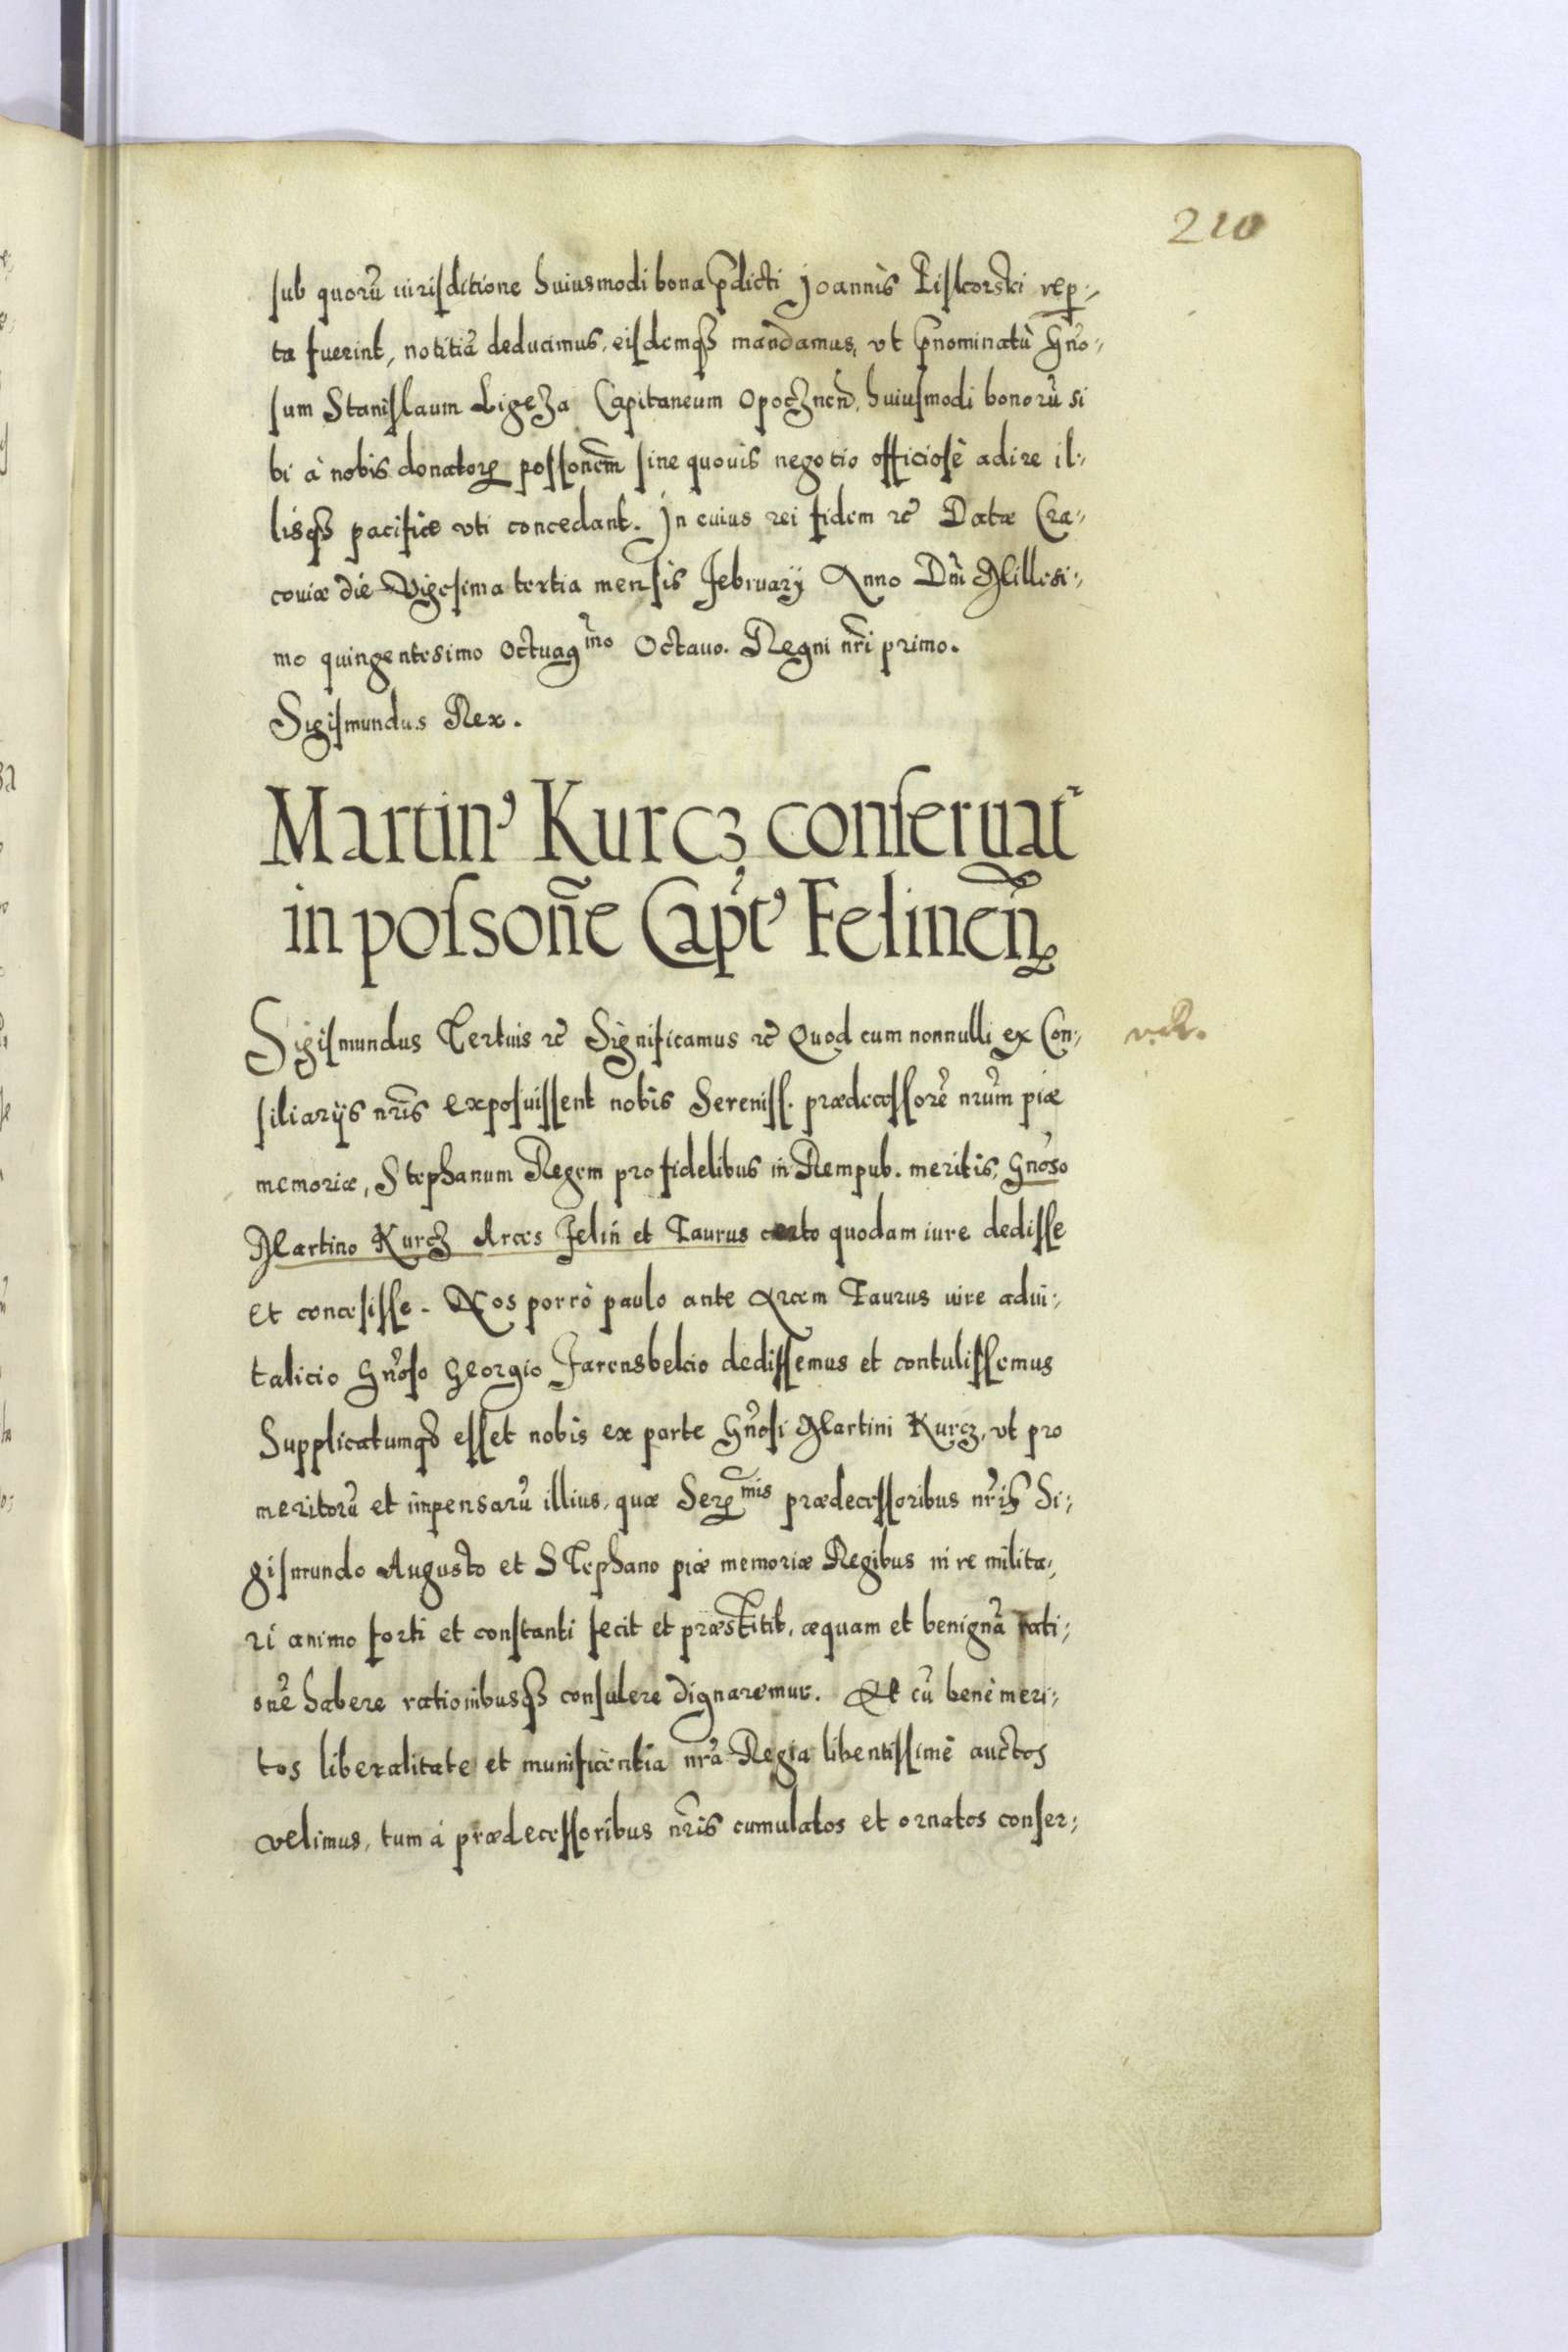 210
sub quorũ iurisditione huiusmodi bona p̃dicti Joannis Piskorski reper-
ta fuerint, notitiã deducimus, eisdemqȝ mandamus, vt p̃nominatũ Gn̄o-
sum Stanislaum Ligeza Capitaneum Opocznen̄, huiusmodi bonorũ si
bi à nobis donatorꝝ possonem̄ sine quouis negotio officiosè adire il-
lisqȝ pacifice vti concedant. In cuius rei fidem ꝛc̄ Datæ Cra-
couiæ die Vigesima tertia mensis Februarÿ Anno Dn̄i Millesi-
mo quingentesimo Octuagmo Octauo. Regni nr̄i primo.
Sigismundus Rex.
Martin' Kurcz conseruat̃
in possone̅ Capt' Felinen̄
Sigismundus Tertius ꝛc̄ Significamus ꝛc̄ Quod cum nonnulli ex Con-
siliarÿs nr̄is exposuissent nobis Sereniss. prædecessorẽ nr̄um piæ
memoriæ, Stephanum Regem pro fidelibus in Rempub. meritis, Gn̄oso
Martino Kurcz Arces Felin̄ et Taurus certo quodam iure dedisse
et concesisse. Nos porrò paulo ante Arcem Taurus iure adui-
talicio Gn̄oso Georgio Farensbekio dedissemus et contulissemus
Supplicatumqȝ esset nobis ex parte Gn̄osi Martini Kurcz, vt pro
meritorũ et impensarũ illius, quæ Serꝝmis prædecessoribus nr̄is Si-
gismundo Augusto et Stephano piæ memoriæ Regibus in re milita-
ri animo forti et constanti fecit et præstitit, æquam et benignã rati-
onẽ habere rationibusqȝ consulere dignaremur. Et cũ benè meri-
tos liberalitate et munificentia nr̄a Regia libentissimè auctos
velimus, tum á prædecessoribus nr̄is cumulatos et ornatos conser-